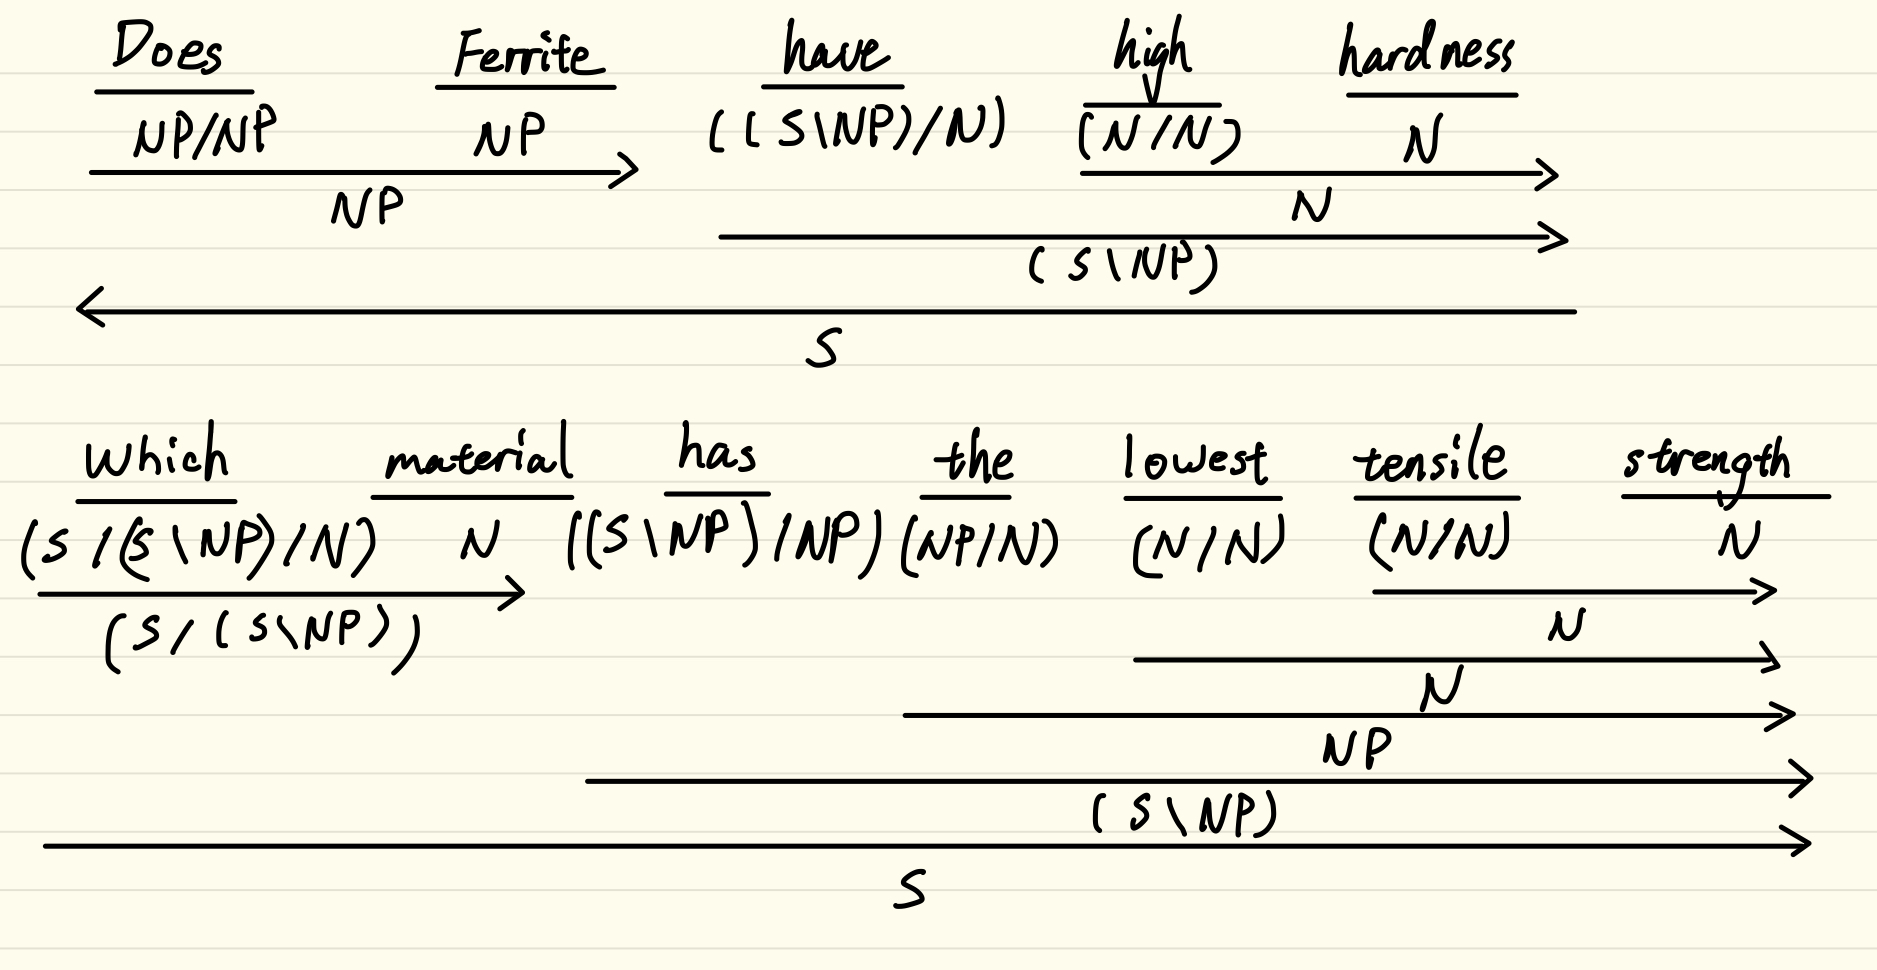 Does Ferrite have high hardness
NP/NP NP ((S\NP)/N) (N/N) N
NP N
(S\NP)
S
which material has the lowest tensile strength
(S/(S\NP)/N) N ((S\NP)/NP) (NP/N) (N/N) (N/N) N
(S/(S\NP)) N
N
NP
(S\NP)
S